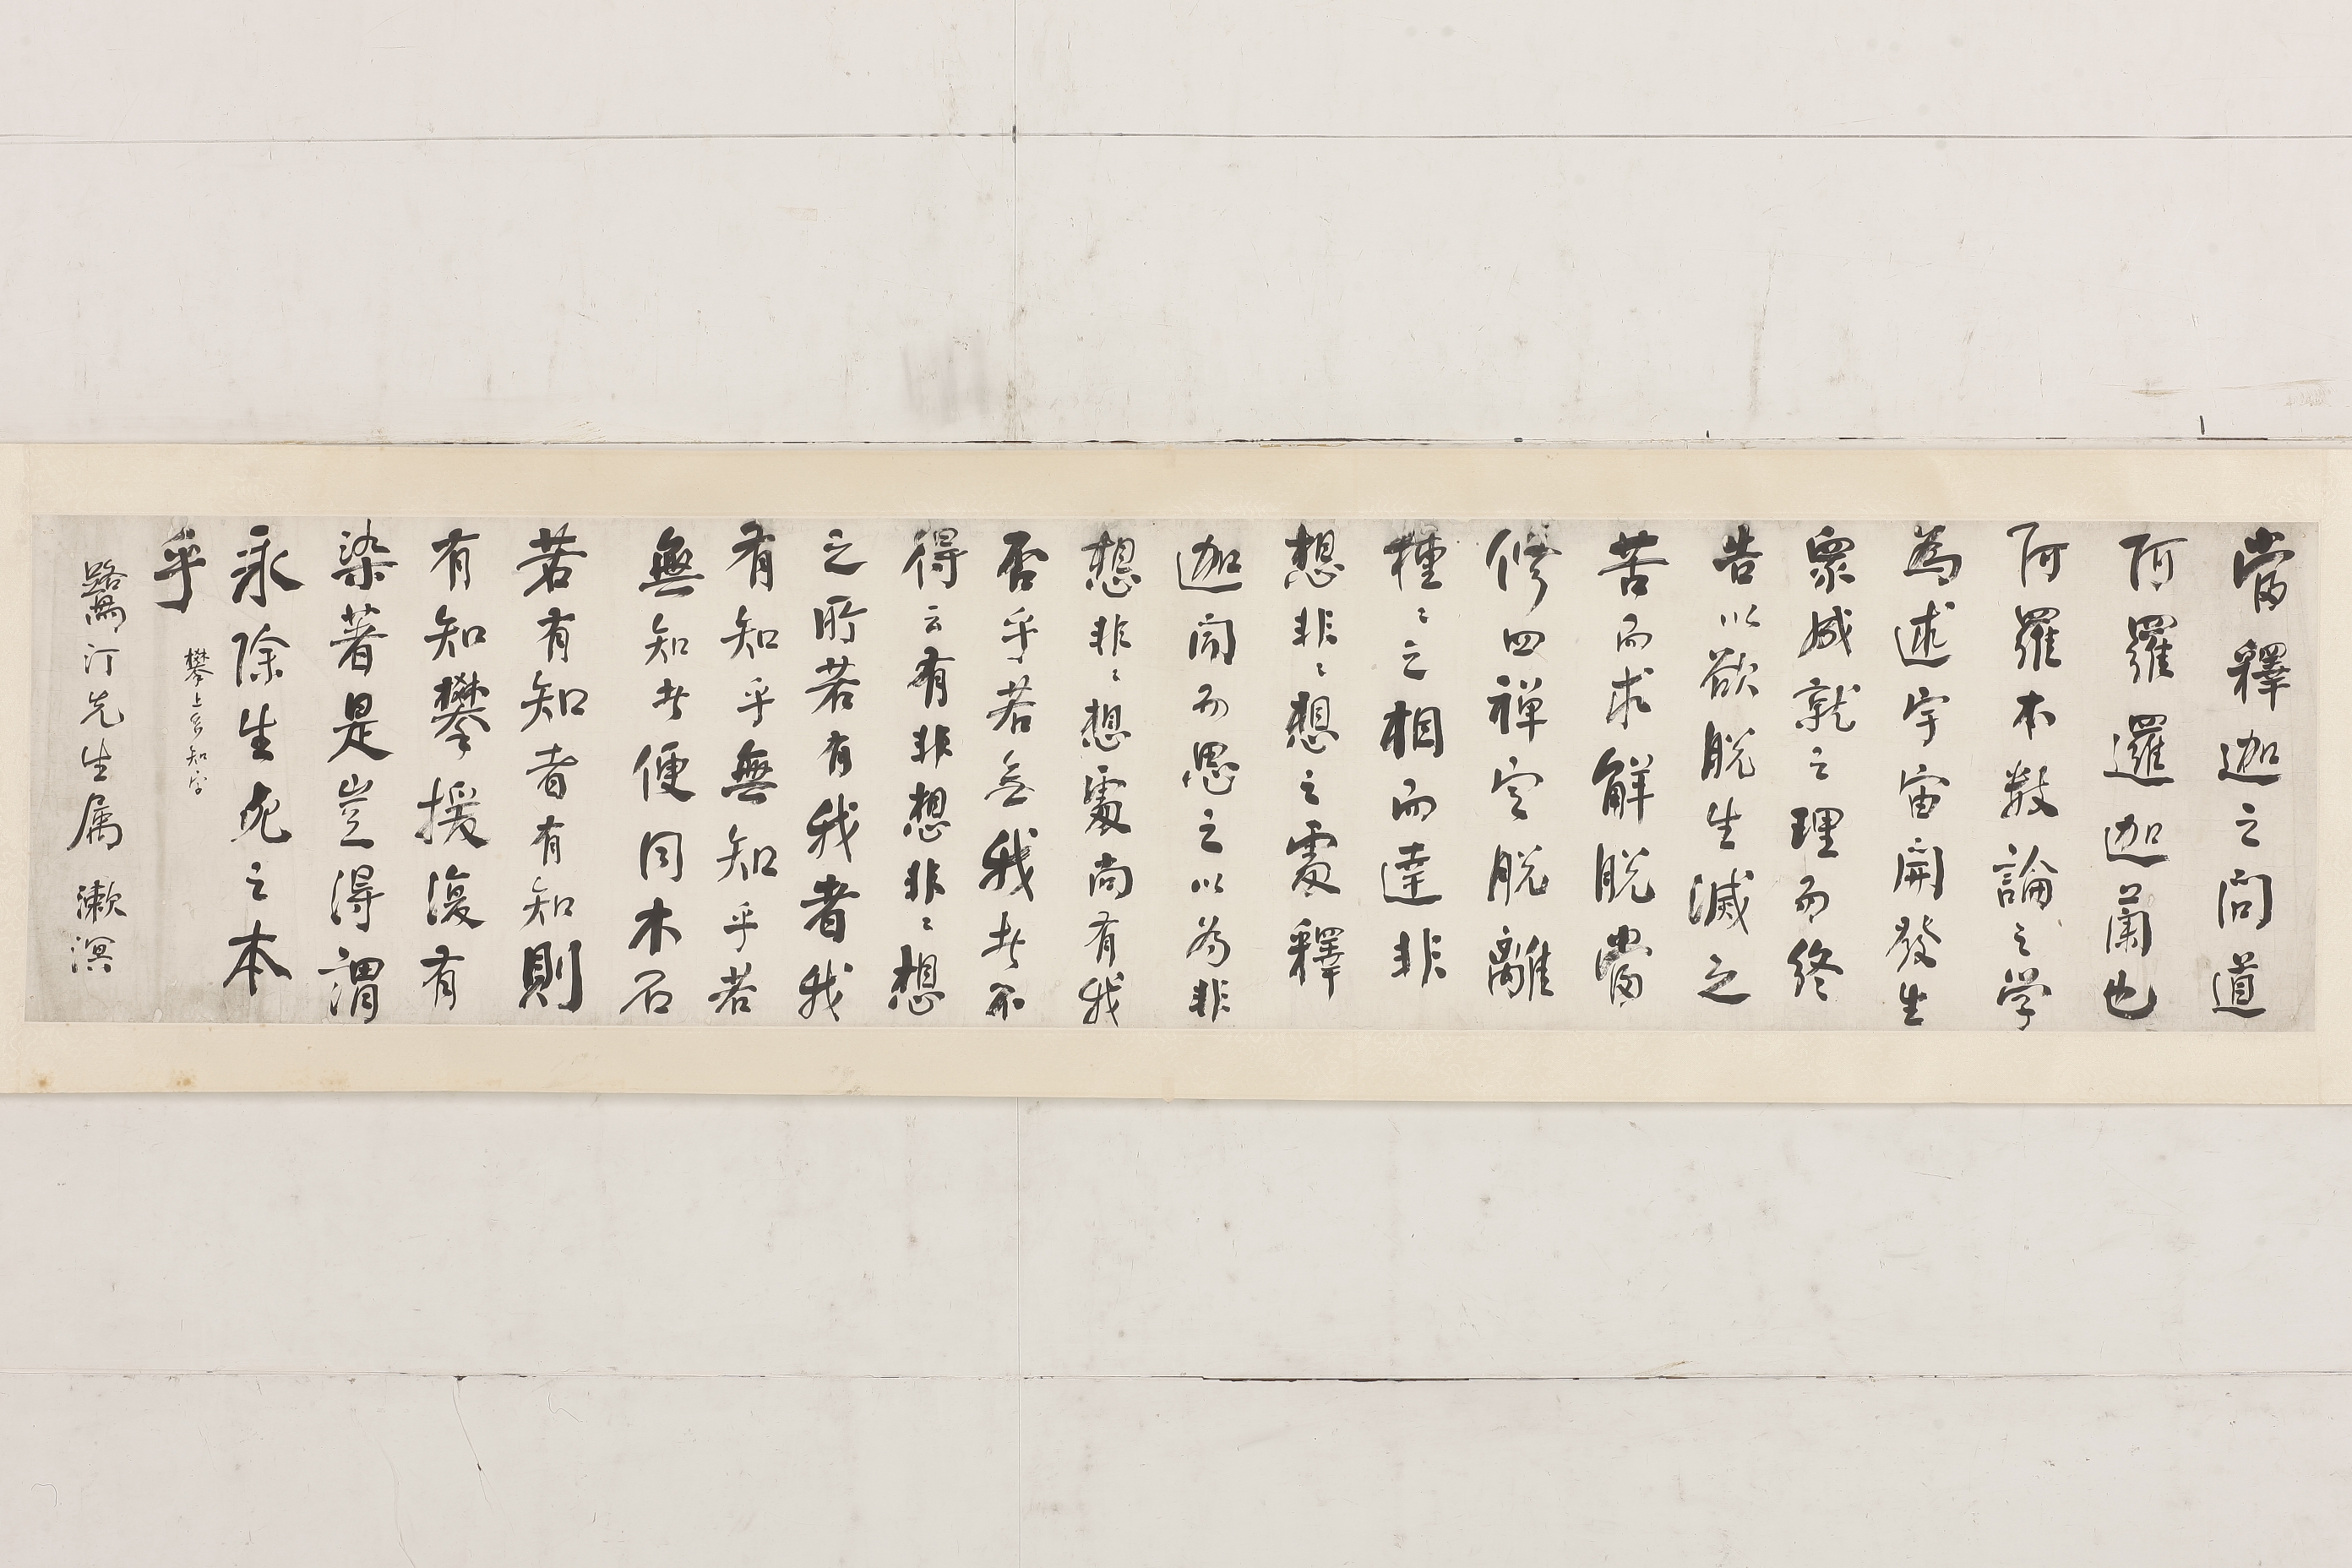 當釋迦之問道
阿羅邏迦蘭也
阿羅本數論之学
為述宇宙開發生
眾成就之理而終
告以欲脫生滅之
苦而求解脫當
修四禅定脫離
種〻之相而達非
想非〻想之處釋
迦聞而愚之以為非
想非〻想處尚有我
否乎若無我此不
得云有非想非〻想
之所若有我者我
有知乎無知乎若
無知此便同木石
若有知者有知則
有知攀援復有
染著是豈得謂
永除生死之本
乎
攀上多知字
鷺汀先生属 漱溟